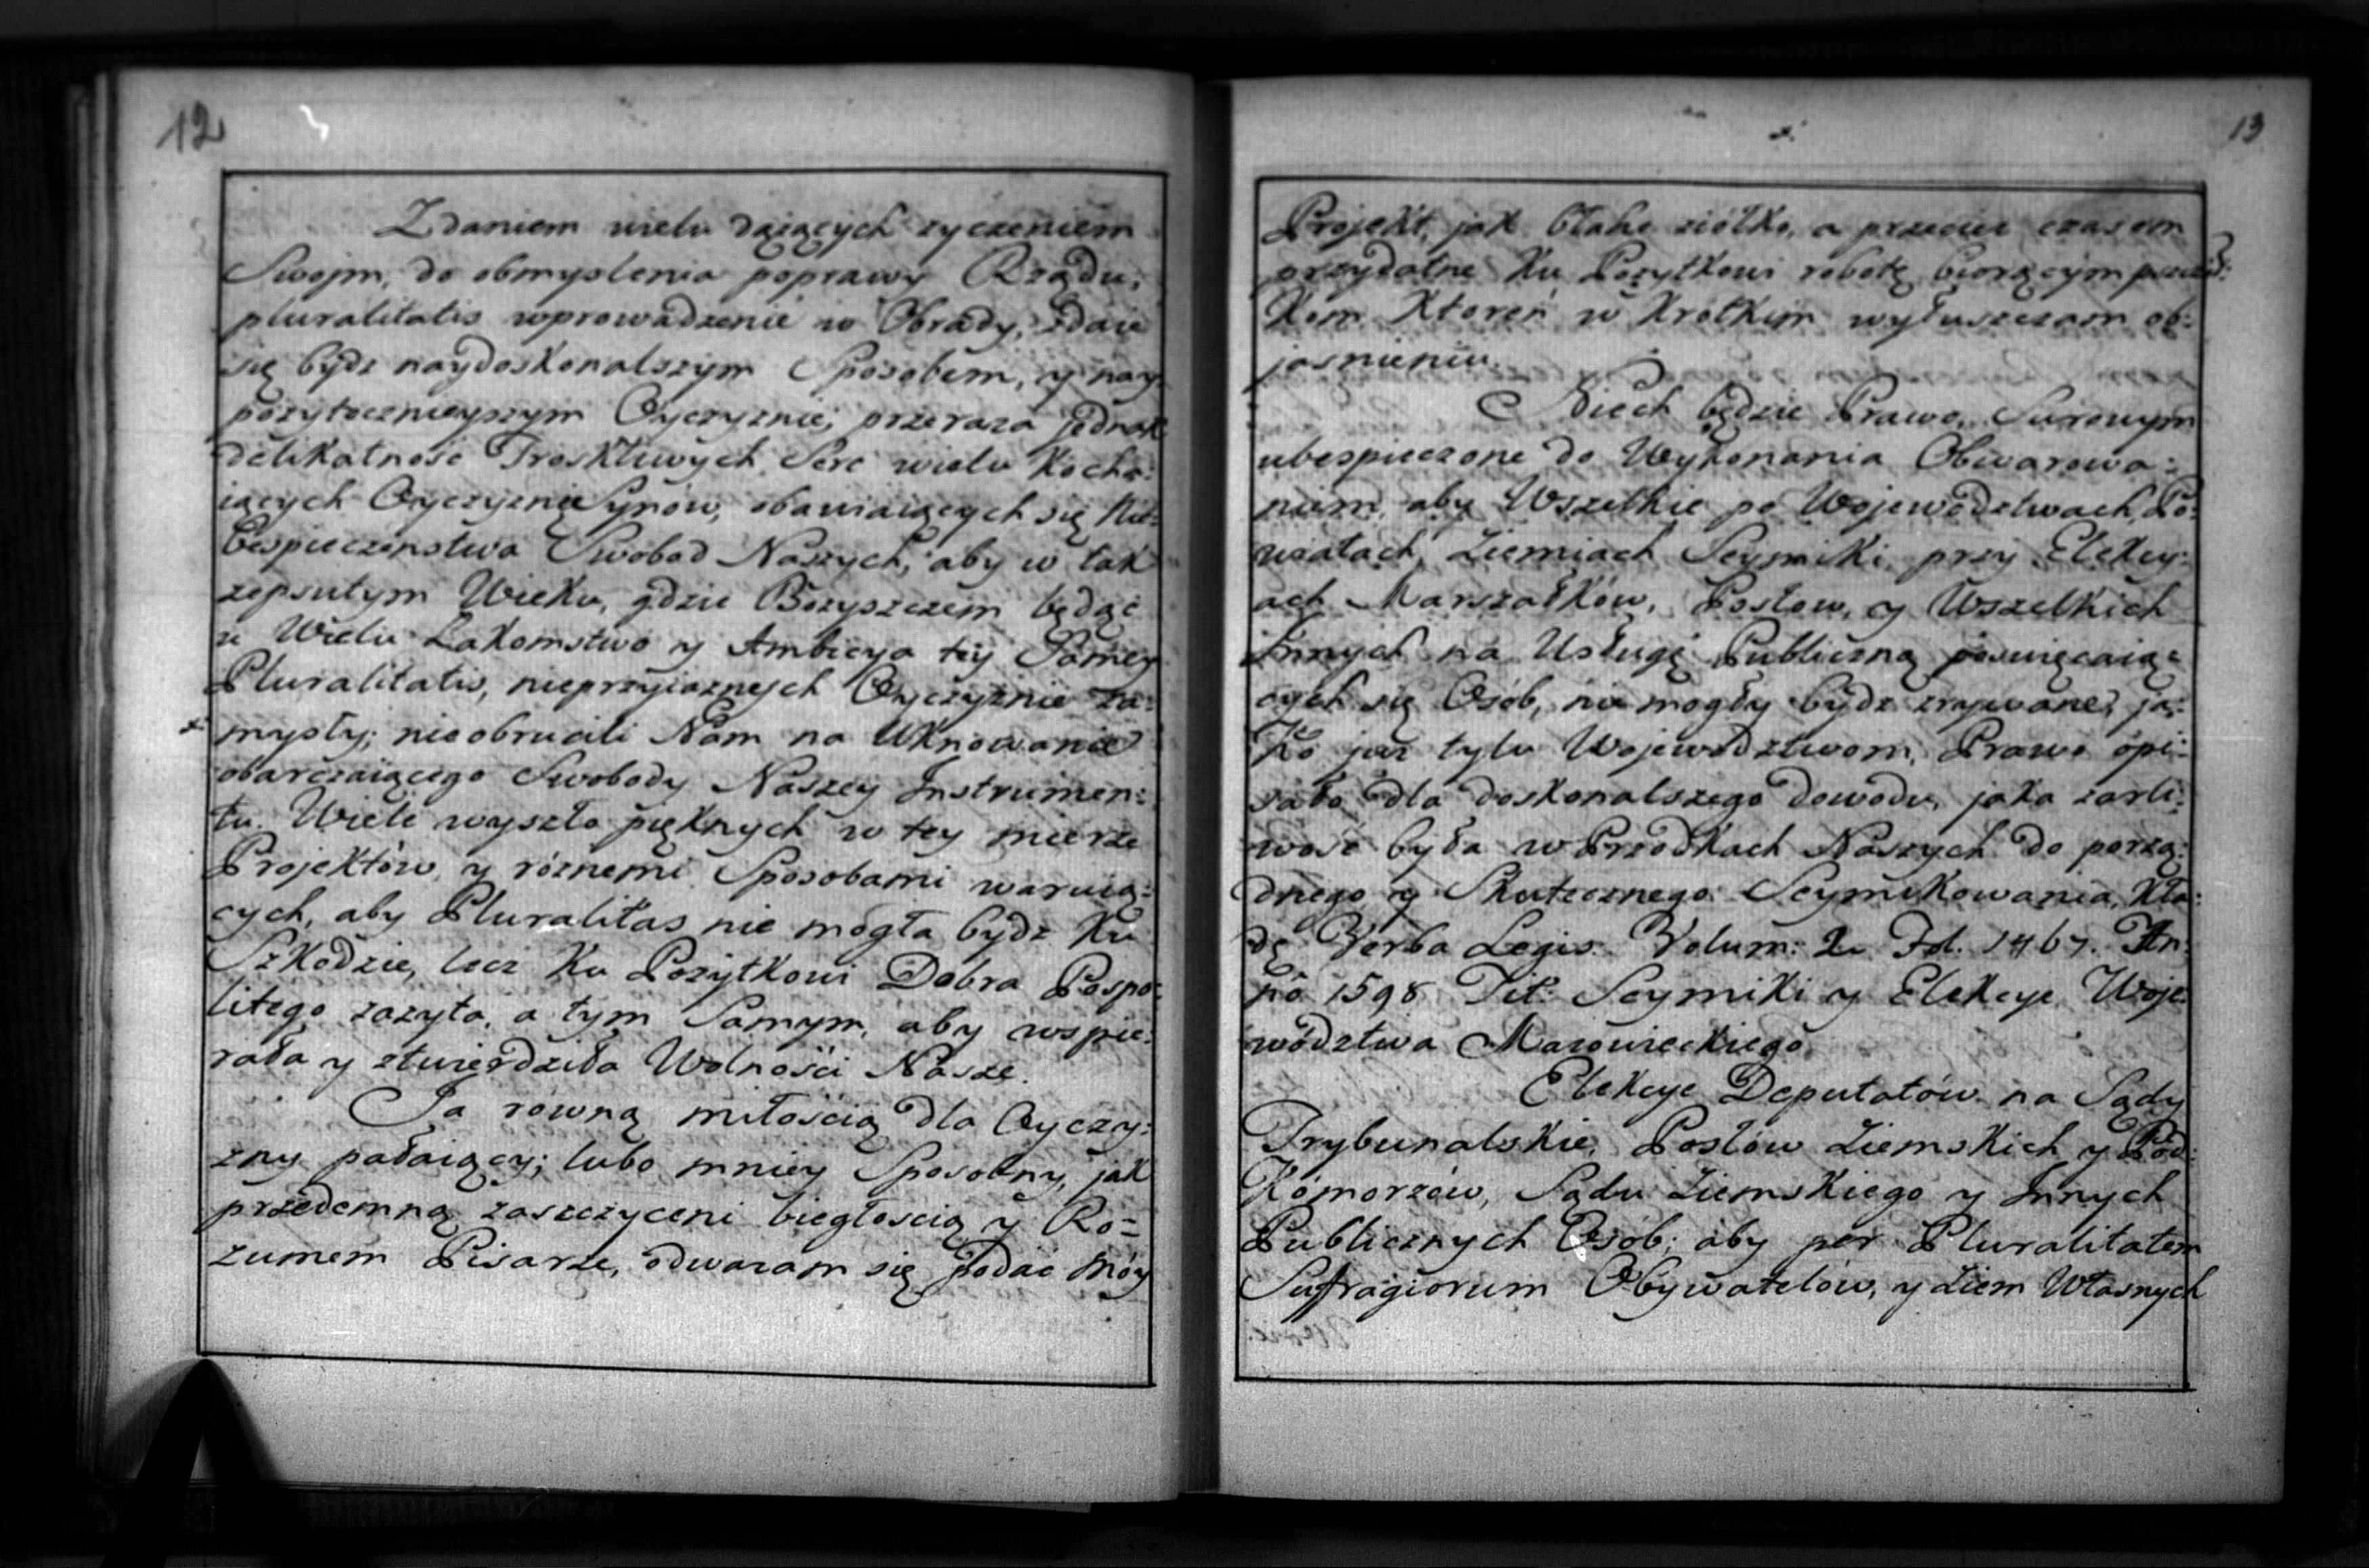 12
Zdaniem wielu dążących zyczeniem
Swojm, do obmyslenia poprawy Rządu,
pluralitatis wprowadzenie w Obrady, zdaie
się bydz naydoskonalszym Sposobem, y nay
pozytecznieyszym Oyczyznie; przeraza jednak
delikatność Troskliwych Serc wielu Kocha:
iących Oyczyznę Synow, obawiaiących się Nie:
bespieczenstwa Swobod Naszych; aby w tak
zepsutym Wieku, gdzie Bozyszczem będąc
u Wielu Łakomstwo y Ambicya tey Samey
Pluralitatis, nieprzyiaznych Oyczyznie za:
mysły; nieobrucili Nam na Uknowanie
obarczaiącego Swobody Naszey Jnstrumen:
tu. Wiele wyszło pięknych w tey mierze
Projektów, y róznemi Sposobami waruią:
cych, aby Pluralitas nie mogła bydz Ku
Szkodzie, lecz Ku Pozytkowi Dobra Pospo:
litego zazyta, a tym Samym, aby wspie:
rała y ztwierdziła Wolności Nasze.
Ja rowną miłością dla Oyczy:
zny pałaiący; lubo mniey Sposobny, jak
przedemną zaszczyceni biegłoscią y Ro=
zumem Pisarze, odwazam się podać Móy
13
Projekt, jak błahe ziółko, a przeciez czasem
przydatne Ku Pozytkowi robotę biorącym
Kom Ktoren w Krotkim wyłuszczam ob:
jasnieniu.
Niech będzie Prawo, Surowym
ubespieczone do Wykonania Obwarowa:
niem, aby Wszelkie po Wojewodztwach, Po:
wiatach, Ziemiach Seymiki przy Elekcy:
ach Marszałków, Posłow, y Wszelkich
Jnnych na Usługę Publiczną poswięcaią:
cych się Osób, nie mogły bydz zrywane, ja:
Ko juz tylu Wojewodztwom, Prawo opi:
sało dla doskonalszego dowodu, jaka zarli:
wość była w Przodkach Naszych do porzą:
dnego y Skutecznego Seymikowania, Kła:
dę Verba Legis. Volum: 2. Fol. 1467. An:
no 1598 Tit: Seymiki y Elekcye Woje:
wództwa Mazowieckiego.
Elekcye Deputatów na Sądy
Trybunalskie, Posłów Ziemskich y Pod:
Komorzów, Sądu Ziemskiego y Jnnych
Publicznych Osób; aby per Pluralitatem
Suffragiorum Obywatelów, y Ziem Własnych